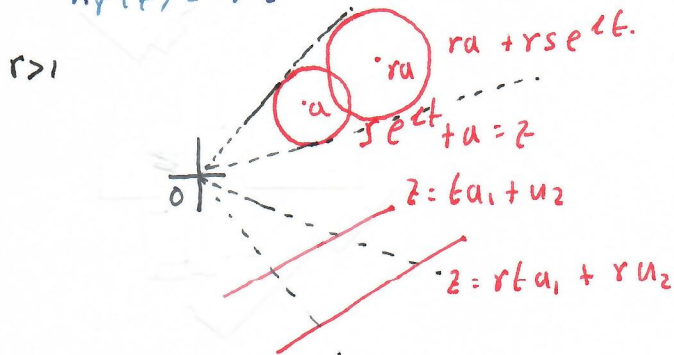 r>1
ra + rs e^{it}.
ra
a
s e^{it} + a = z
0
z = ta₁ + u₂
z = rta₁ + ru₂